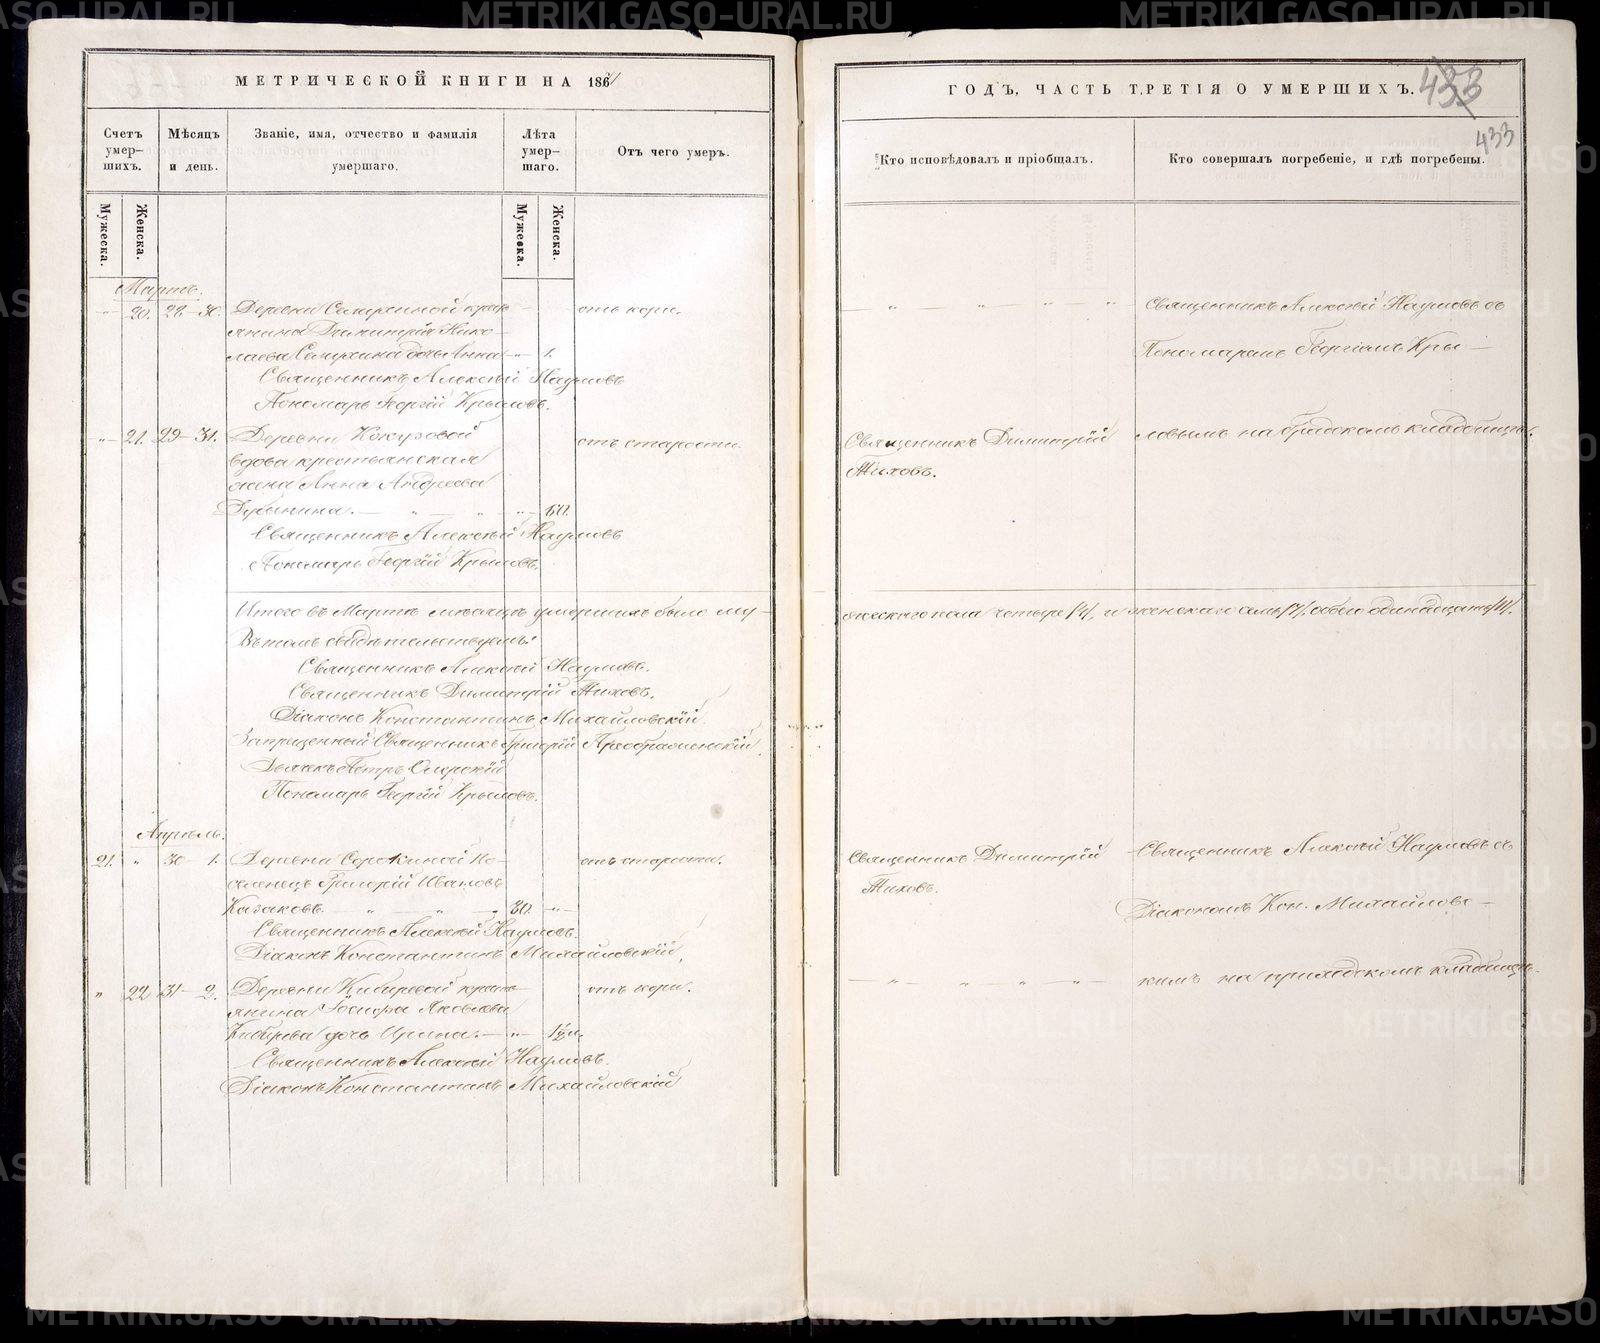 МЕТРИЧЕСКОЙ КНИГИ НА 186
Счетъ умер–шихъ.
Мѣсяцъ и день.
Званіе, имя, отчество и фамилія умершаго.
Лѣта умер–шаго.
Отъ чего умеръ.
Мужеска.
Женска.
Мужеска.
Женска.
Мартъ.
20. 28–30. Деревни
янина Димитрія Нико–
лаева дочь Анна 1.
отъ кори.
Священникъ Алексѣй Наумовъ
Пономарь Георгій Крыловъ.
21. 29–31. Деревни
вдова крестьянская
жена Анна Андреева
60.
отъ старости.
Священникъ Алексѣй Наумовъ
Пономарь Георгій Крыловъ.
Итого въ Мартѣ мѣсяцѣ умершихъ было му–
Въ томъ свидѣтельствуемъ:
Священникъ Алексѣй Наумовъ.
Священникъ Димитрій Тиховъ.
Діаконъ Константинъ Михайловскій.
Запрещенный Священникъ Григорій Преображенскій.
Дьячекъ Петръ
Пономарь Георгій Крыловъ.
Апрѣль.
21. 30 1. Деревни Сорокиной По–
селенецъ Григорій Ивановъ
Казаковъ. 30.
отъ старости.
Священникъ Алексѣй Наумовъ.
Діаконъ Константинъ Михайловскій.
22 31–2. Деревни Кибиревой кресть
янина Яковлева
Кибирева дочь Ирина. 1½
отъ кори.
Священникъ Алексѣй Наумовъ.
Діаконъ Константинъ Михайловскій
ГОДЪ, ЧАСТЬ ТРЕТІЯ О УМЕРШИХЪ.
433
433
Кто исповѣдовалъ и пріобщалъ.
Кто совершалъ погребеніе, и гдѣ погребены.
Священникъ Алексѣй Наумовъ съ
Пономаремъ Георгіемъ Кры–
Священникъ Димитрій
Тиховъ.
ловымъ на градскомъ кладбищѣ.
жескаго пола четыре /4/, и женскаго семь /7/, обоего одинадцать /11/.
Священникъ Димитрій
Тиховъ.
Священникъ Алексѣй Наумовъ съ
Діакономъ Кон. Михайловс–
кимъ на приходскомъ кладбищѣ.
METRIKI.GASO-URAL.RU